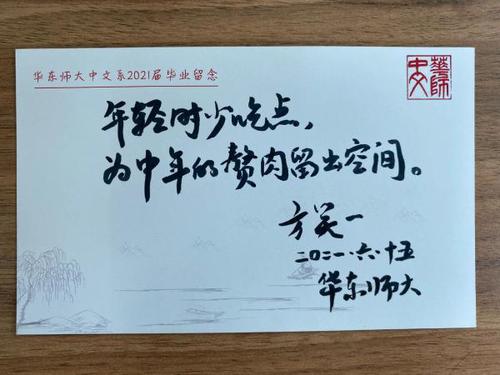 华东师大中文系2021届毕业留念
華師
中文
年轻时少吃点，
为中年的赘肉留出空间。
方笑一
二〇二一.六.十五
华东师大